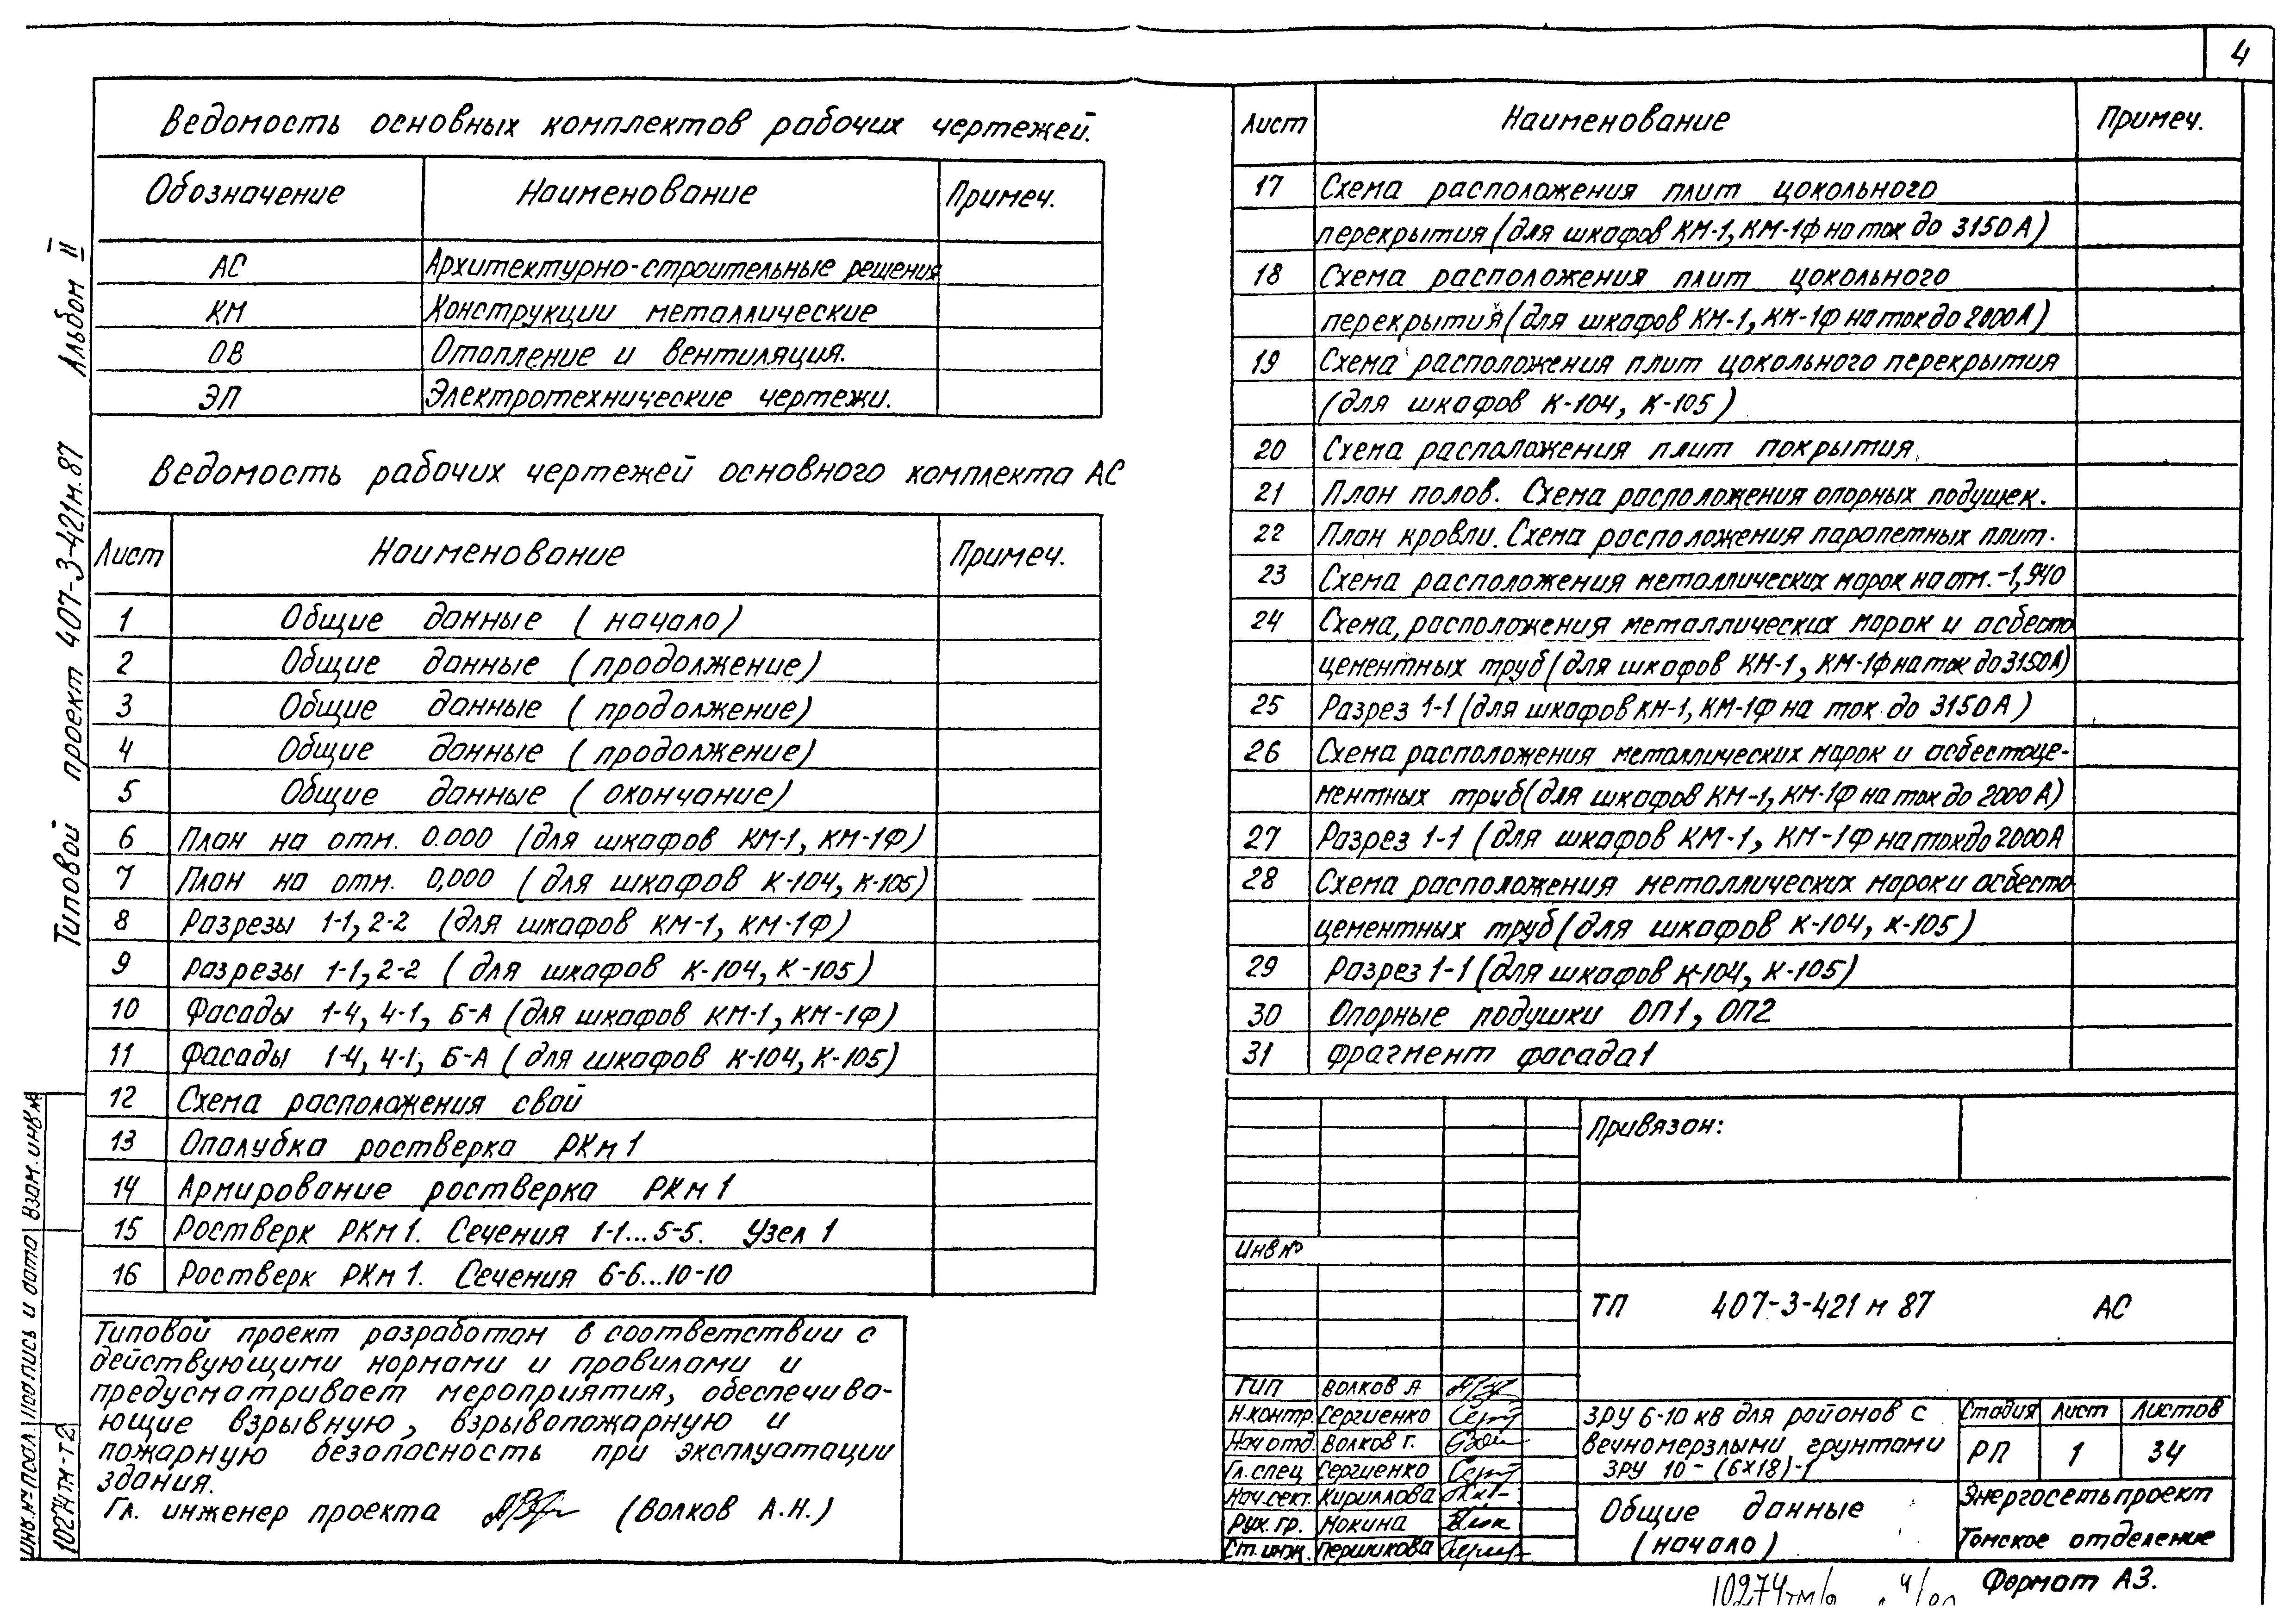 4
Ведомость основных комплектов рабочих чертежей.
Обозначение Наименование Примеч.
АС Архитектурно-строительные решения
КМ Конструкции металлические
ОВ Отопление и вентиляция.
ЭП Электротехнические чертежи.
Ведомость рабочих чертежей основного комплекта АС
Лист Наименование Примеч.
1 Общие данные (начало)
2 Общие данные (продолжение)
3 Общие данные (продолжение)
4 Общие данные (продолжение)
5 Общие данные (окончание)
6 План на отм. 0.000 (для шкафов КМ-1, КМ-1Ф)
7 План на отм. 0,000 (для шкафов К-104, К-105)
8 Разрезы 1-1, 2-2 (для шкафов КМ-1, КМ-1Ф)
9 Разрезы 1-1, 2-2 (для шкафов К-104, К-105)
10 Фасады 1-4, 4-1, Б-А (для шкафов КМ-1, КМ-1Ф)
11 Фасады 1-4, 4-1, Б-А (для шкафов К-104, К-105)
12 Схема расположения свай
13 Опалубка ростверка РКм1
14 Армирование ростверка РКм1
15 Ростверк РКм1. Сечения 1-1...5-5. Узел 1
16 Ростверк РКм1. Сечения 6-6...10-10
Типовой проект разработан в соответствии с
действующими нормами и правилами и
предусматривает мероприятия, обеспечива-
ющие взрывную, взрывопожарную и
пожарную безопасность при эксплуатации
здания.
Гл. инженер проекта (Волков А.Н.)
Типовой проект 407-3-421м.87 Альбом II
Инв.№ подл. Подпись и дата Взам. инв №
10274тм-т2
Лист Наименование Примеч.
17 Схема расположения плит цокольного
перекрытия (для шкафов КМ-1, КМ-1Ф на ток до 3150А)
18 Схема расположения плит цокольного
перекрытия (для шкафов КМ-1, КМ-1Ф на ток до 2000А)
19 Схема расположения плит цокольного перекрытия
(для шкафов К-104, К-105)
20 Схема расположения плит покрытия
21 План полов. Схема расположения опорных подушек.
22 План кровли. Схема расположения парапетных плит.
23 Схема расположения металлических марок на отм. -1,940
24 Схема расположения металлических марок и асбесто
цементных труб (для шкафов КМ-1, КМ-1Ф на ток до 3150А)
25 Разрез 1-1 (для шкафов КМ-1, КМ-1Ф на ток до 3150А)
26 Схема расположения металлических марок и асбестоце-
ментных труб (для шкафов КМ-1, КМ-1Ф на ток до 2000А)
27 Разрез 1-1 (для шкафов КМ-1, КМ-1Ф на ток до 2000А
28 Схема расположения металлических марок и асбесто
цементных труб (для шкафов К-104, К-105)
29 Разрез 1-1 (для шкафов К-104, К-105)
30 Опорные подушки ОП1, ОП2
31 Фрагмент фасада 1
Привязан:
Инв №
ТП 407-3-421 м 87 АС
ГИП Волков А
Н.контр. Сергиенко
Нач отд. Волков Г.
Гл. спец Сергиенко
Нач.сект. Кириллова
Рук. гр. Мокина
Ст. инж. Першикова
ЗРУ 6-10 кв для районов с
вечномерзлыми грунтами
ЗРУ 10-(6х18)-1
Стадия Лист Листов
РП 1 34
Общие данные
(начало)
Энергосетьпроект
Томское отделение
Формат А3.